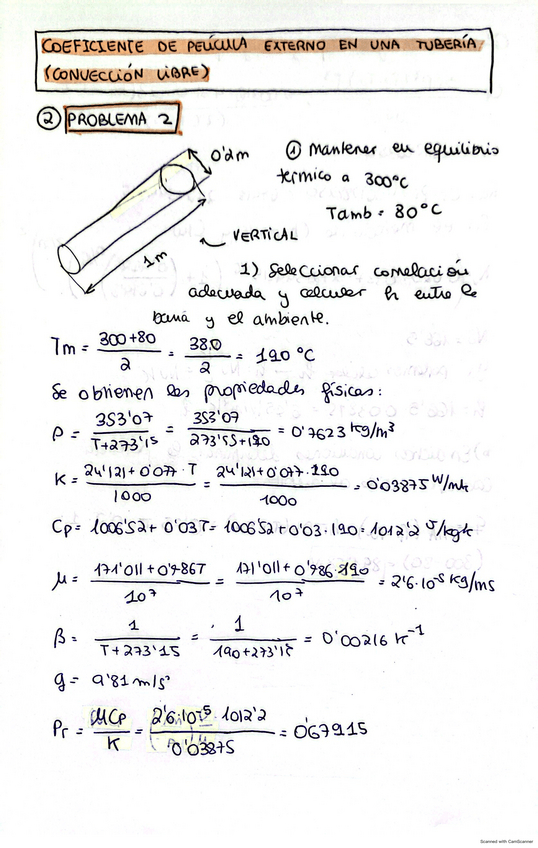 COEFICIENTE DE PELÍCULA EXTERNO EN UNA TUBERÍA
(CONVECCIÓN LIBRE)
② PROBLEMA 2
0'2m
① Mantener en equilibrio
termico a 300°C
Tamb = 80°C
VERTICAL
1m
1) Seleccionar correlación
adecuada y calcular h entre la
barra y el ambiente.
Tm = (300+80)/2 = 380/2 = 190 °C
Se obtienen las propiedades físicas:
ρ = 353'07/(T+273'15) = 353'07/(273'15+190) = 0'7623 kg/m³
K = (24'121+0'077·T)/1000 = (24'121+0'077·190)/1000 = 0'03875 W/mk
Cp = 1006'52+0'03T = 1006'52+0'03·190 = 1012'2 J/kgk
μ = (171'011+0'486T)/10⁷ = (171'011+0'486·190)/10⁷ = 2'6·10⁻⁵ kg/ms
β = 1/(T+273'15) = 1/(190+273'15) = 0'00216 K⁻¹
g = 9'81 m/s²
Pr = μCp/K = (2'6·10⁻⁵·1012'2)/0'03875 = 0'67915
Scanned with CamScanner